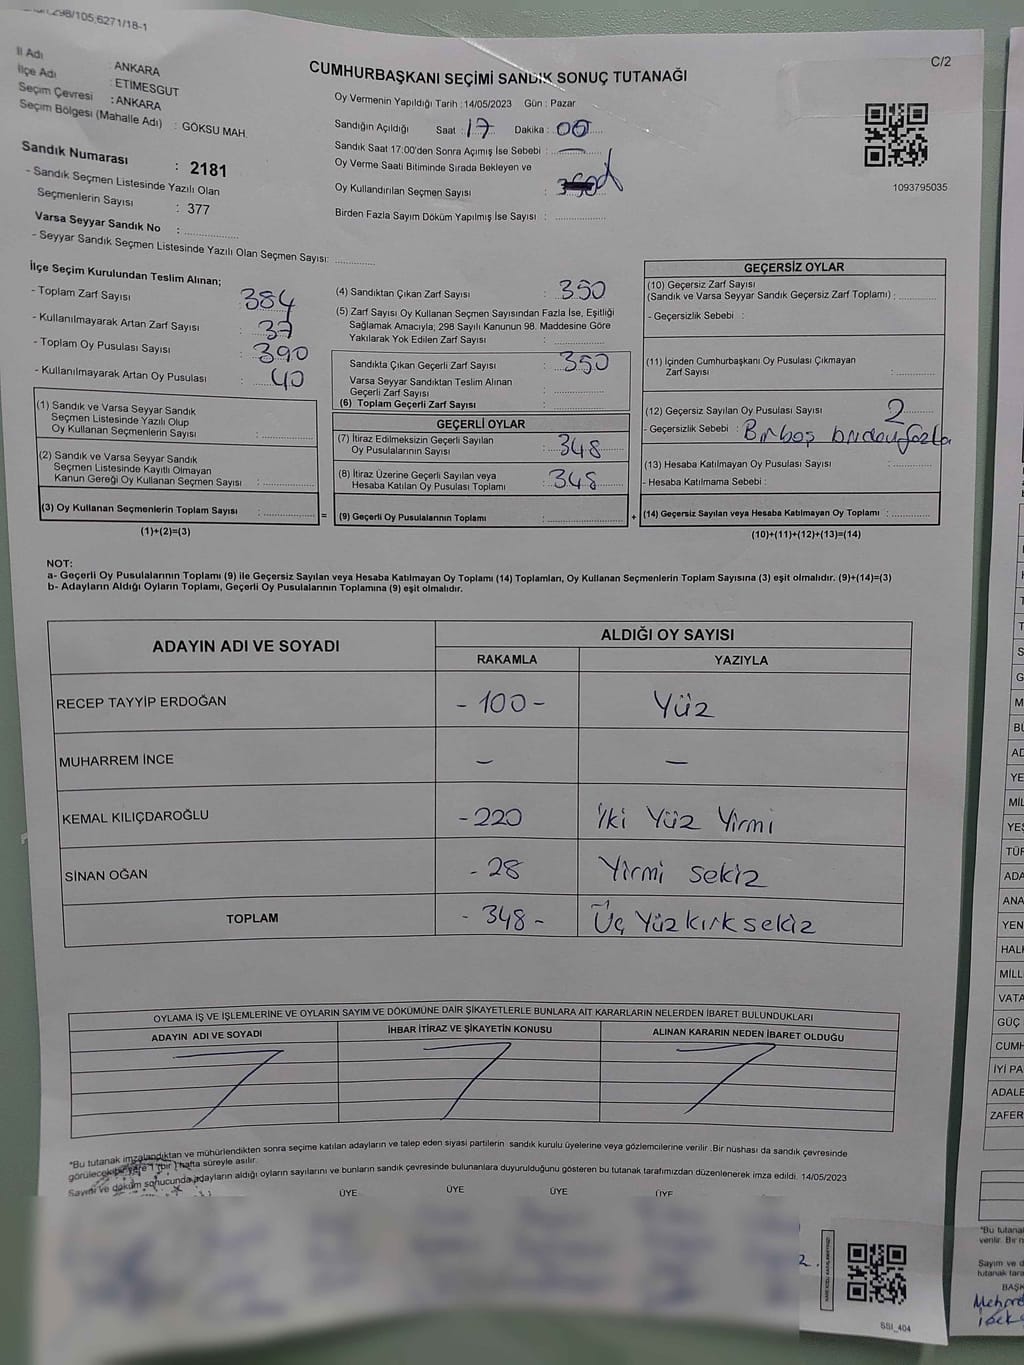 298/105,6271/18-1
C/2
İl Adı : ANKARA
İlçe Adı : ETIMESGUT
Seçim Çevresi : ANKARA
Seçim Bölgesi (Mahalle Adı) : GÖKSU MAH.
Sandık Numarası : 2181
- Sandık Seçmen Listesinde Yazılı Olan
Seçmenlerin Sayısı : 377
Varsa Seyyar Sandık No :
- Seyyar Sandık Seçmen Listesinde Yazılı Olan Seçmen Sayısı:
CUMHURBAŞKANI SEÇİMİ SANDIK SONUÇ TUTANAĞI
Oy Vermenin Yapıldığı Tarih : 14/05/2023 Gün : Pazar
Sandığın Açıldığı Saat : 17 Dakika : 00
Sandık Saat 17:00'den Sonra Açımış İse Sebebi : —
Oy Verme Saati Bitiminde Sırada Bekleyen ve
Oy Kullandırılan Seçmen Sayısı :
Birden Fazla Sayım Döküm Yapılmış İse Sayısı :
1093795035
İlçe Seçim Kurulundan Teslim Alınan;
- Toplam Zarf Sayısı : 384
- Kullanılmayarak Artan Zarf Sayısı : 37
- Toplam Oy Pusulası Sayısı : 390
- Kullanılmayarak Artan Oy Pusulası : 40
(1) Sandık ve Varsa Seyyar Sandık
Seçmen Listesinde Yazılı Olup
Oy Kullanan Seçmenlerin Sayısı :
(2) Sandık ve Varsa Seyyar Sandık
Seçmen Listesinde Kayıtlı Olmayan
Kanun Gereği Oy Kullanan Seçmen Sayısı :
(3) Oy Kullanan Seçmenlerin Toplam Sayısı :
(1)+(2)=(3)
(4) Sandıktan Çıkan Zarf Sayısı : 350
(5) Zarf Sayısı Oy Kullanan Seçmen Sayısından Fazla İse, Eşitliği
Sağlamak Amacıyla; 298 Sayılı Kanunun 98. Maddesine Göre
Yakılarak Yok Edilen Zarf Sayısı :
Sandıkta Çıkan Geçerli Zarf Sayısı : 350
Varsa Seyyar Sandıktan Teslim Alınan
Geçerli Zarf Sayısı :
(6) Toplam Geçerli Zarf Sayısı :
GEÇERLİ OYLAR
(7) İtiraz Edilmeksizin Geçerli Sayılan
Oy Pusulasının Sayısı : 348
(8) İtiraz Üzerine Geçerli Sayılan veya
Hesaba Katılan Oy Pusulası Toplamı : 348
(9) Geçerli Oy Pusulalarının Toplamı :
GEÇERSİZ OYLAR
(10) Geçersiz Zarf Sayısı
(Sandık ve Varsa Seyyar Sandık Geçersiz Zarf Toplamı) :
- Geçersizlik Sebebi :
(11) İçinden Cumhurbaşkanı Oy Pusulası Çıkmayan
Zarf Sayısı :
(12) Geçersiz Sayılan Oy Pusulası Sayısı : 2
- Geçersizlik Sebebi : Bir boş birden fazla
(13) Hesaba Katılmayan Oy Pusulası Sayısı :
- Hesaba Katılmama Sebebi :
(14) Geçersiz Sayılan veya Hesaba Katılmayan Oy Toplamı :
(10)+(11)+(12)+(13)=(14)
NOT:
a- Geçerli Oy Pusulalarının Toplamı (9) ile Geçersiz Sayılan veya Hesaba Katılmayan Oy Toplamı (14) Toplamları, Oy Kullanan Seçmenlerin Toplam Sayısına (3) eşit olmalıdır. (9)+(14)=(3)
b- Adayların Aldığı Oyların Toplamı, Geçerli Oy Pusulalarının Toplamına (9) eşit olmalıdır.
ADAYIN ADI VE SOYADI
ALDIĞI OY SAYISI
RAKAMLA YAZIYLA
RECEP TAYYİP ERDOĞAN - 100 - Yüz
MUHARREM İNCE — —
KEMAL KILIÇDAROĞLU - 220 İki Yüz Yirmi
SİNAN OĞAN - 28 Yirmi sekiz
TOPLAM - 348 - Üç Yüz kırk sekiz
OYLAMA İŞ VE İŞLEMLERİNE VE OYLARIN SAYIM VE DÖKÜMÜNE DAİR ŞİKAYETLERLE BUNLARA AİT KARARLARIN NELERDEN İBARET BULUNDUKLARI
ADAYIN ADI VE SOYADI İHBAR İTİRAZ VE ŞİKAYETİN KONUSU ALINAN KARARIN NEDEN İBARET OLDUĞU
*Bu tutanak imzalandıktan ve mühürlendikten sonra seçime katılan adayların ve talep eden siyasi partilerin sandık kurulu üyelerine veya gözlemcilerine verilir. Bir nushası da sandık çevresinde
görülecek bir yere 1 (bir) hafta süreyle asılır.
Sayım ve döküm sonucunda adayların aldığı oyların sayılarını ve bunların sandık çevresinde bulunanlara duyurulduğunu gösteren bu tutanak tarafımızdan düzenlenerek imza edildi. 14/05/2023
ÜYE ÜYE ÜYE ÜYE
SSI_404